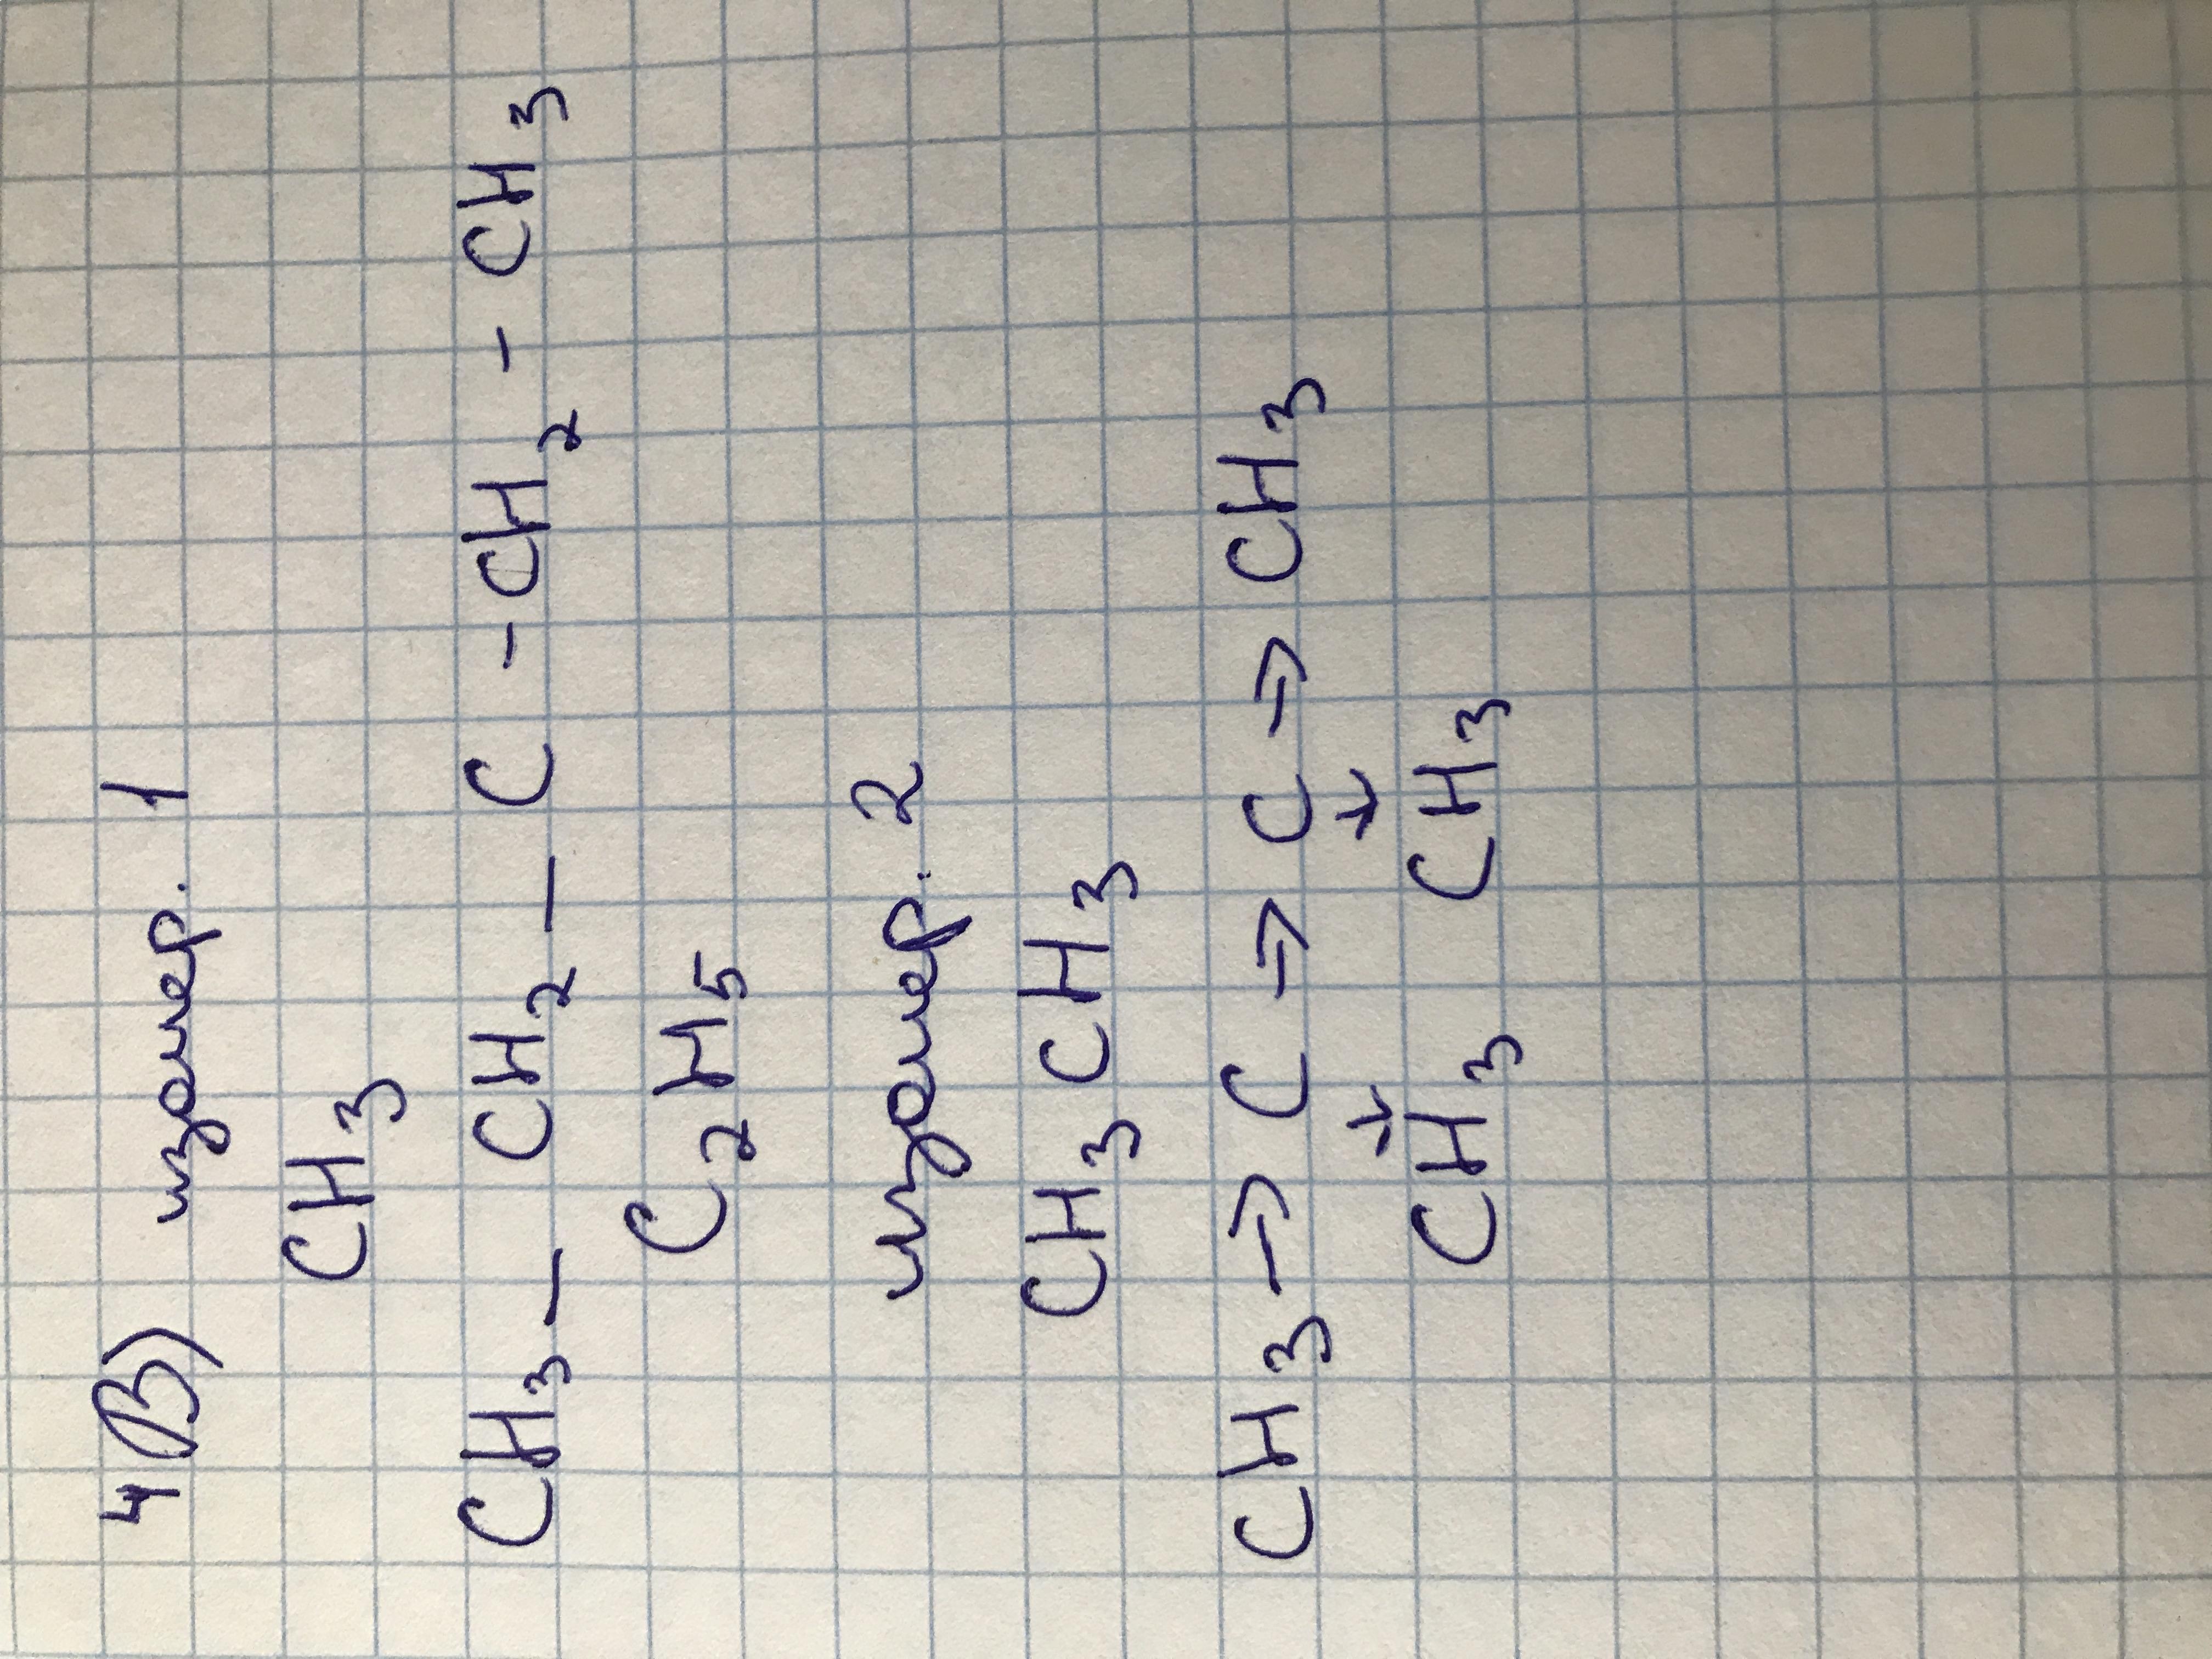 4 В) изомер. 1
CH3
CH3 — CH2 — C - CH2 - CH3
C2H5
изомер. 2
CH3 CH3
CH3 → C → C → CH3
↓ ↓
CH3 CH3